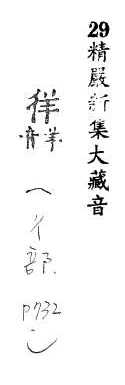 29精嚴新集大藏音
徉
音羊
（彳部 p732）